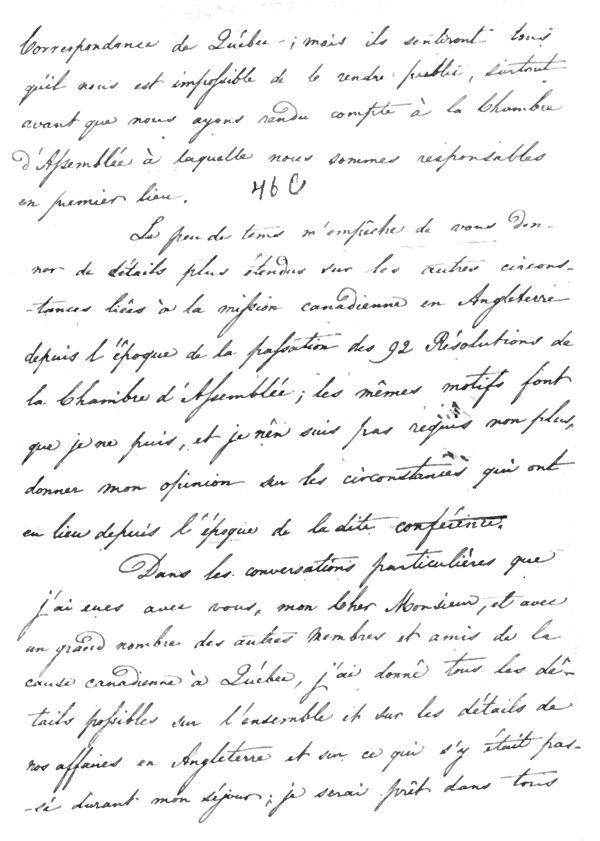 Correspondance de Québec -; mais ils sentiront tous
qu'il nous est impossible de le rendre public, surtout
avant que nous ayons rendu compte à la Chambre
d'Assemblée à laquelle nous sommes responsables
en premier lieu. 46 C
Le peu de tems m'empêche de vous don-
ner de détails plus étendus sur les autres circons-
-tances liées à la mission canadienne en Angleterre
depuis l'époque de la passation des 92 Résolutions de
la Chambre d'Assemblée; les mêmes motifs font
que je ne puis, et je n'en suis pas requis non plus,
donner mon opinion sur les circonstances qui ont
eu lieu depuis l'époque de la dite conférence.
Dans les conversations particulières que
j'ai eues avec vous, mon Cher Monsieur, et avec
un grand nombre des autres membres et amis de la
cause canadienne à Québec, j'ai donné tous les dé-
tails possibles sur l'ensemble et sur les détails de
nos affaires en Angleterre et sur ce qui s'y était pas-
-sé durant mon séjour; je serai prêt dans tous